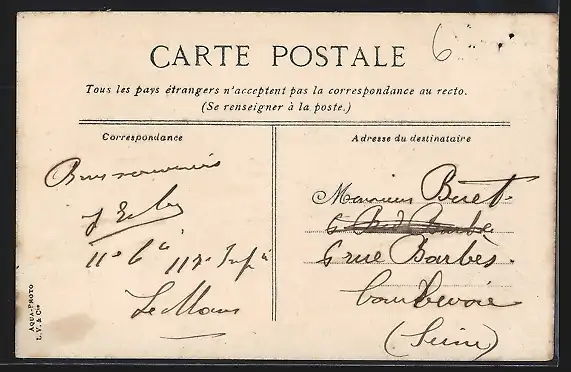 6
CARTE POSTALE
Tous les pays étrangers n'acceptent pas la correspondance au recto.
(Se renseigner à la poste.)
Correspondance
Bons souvenirs
11e 6e à 117e Infie
Le Mans
AQUA-PHOTO
L. V. & Cie
Adresse du destinataire
Monsieur Biret
6 Bd Barbè
6 rue Barbès.
Courbevoie
(Seine)